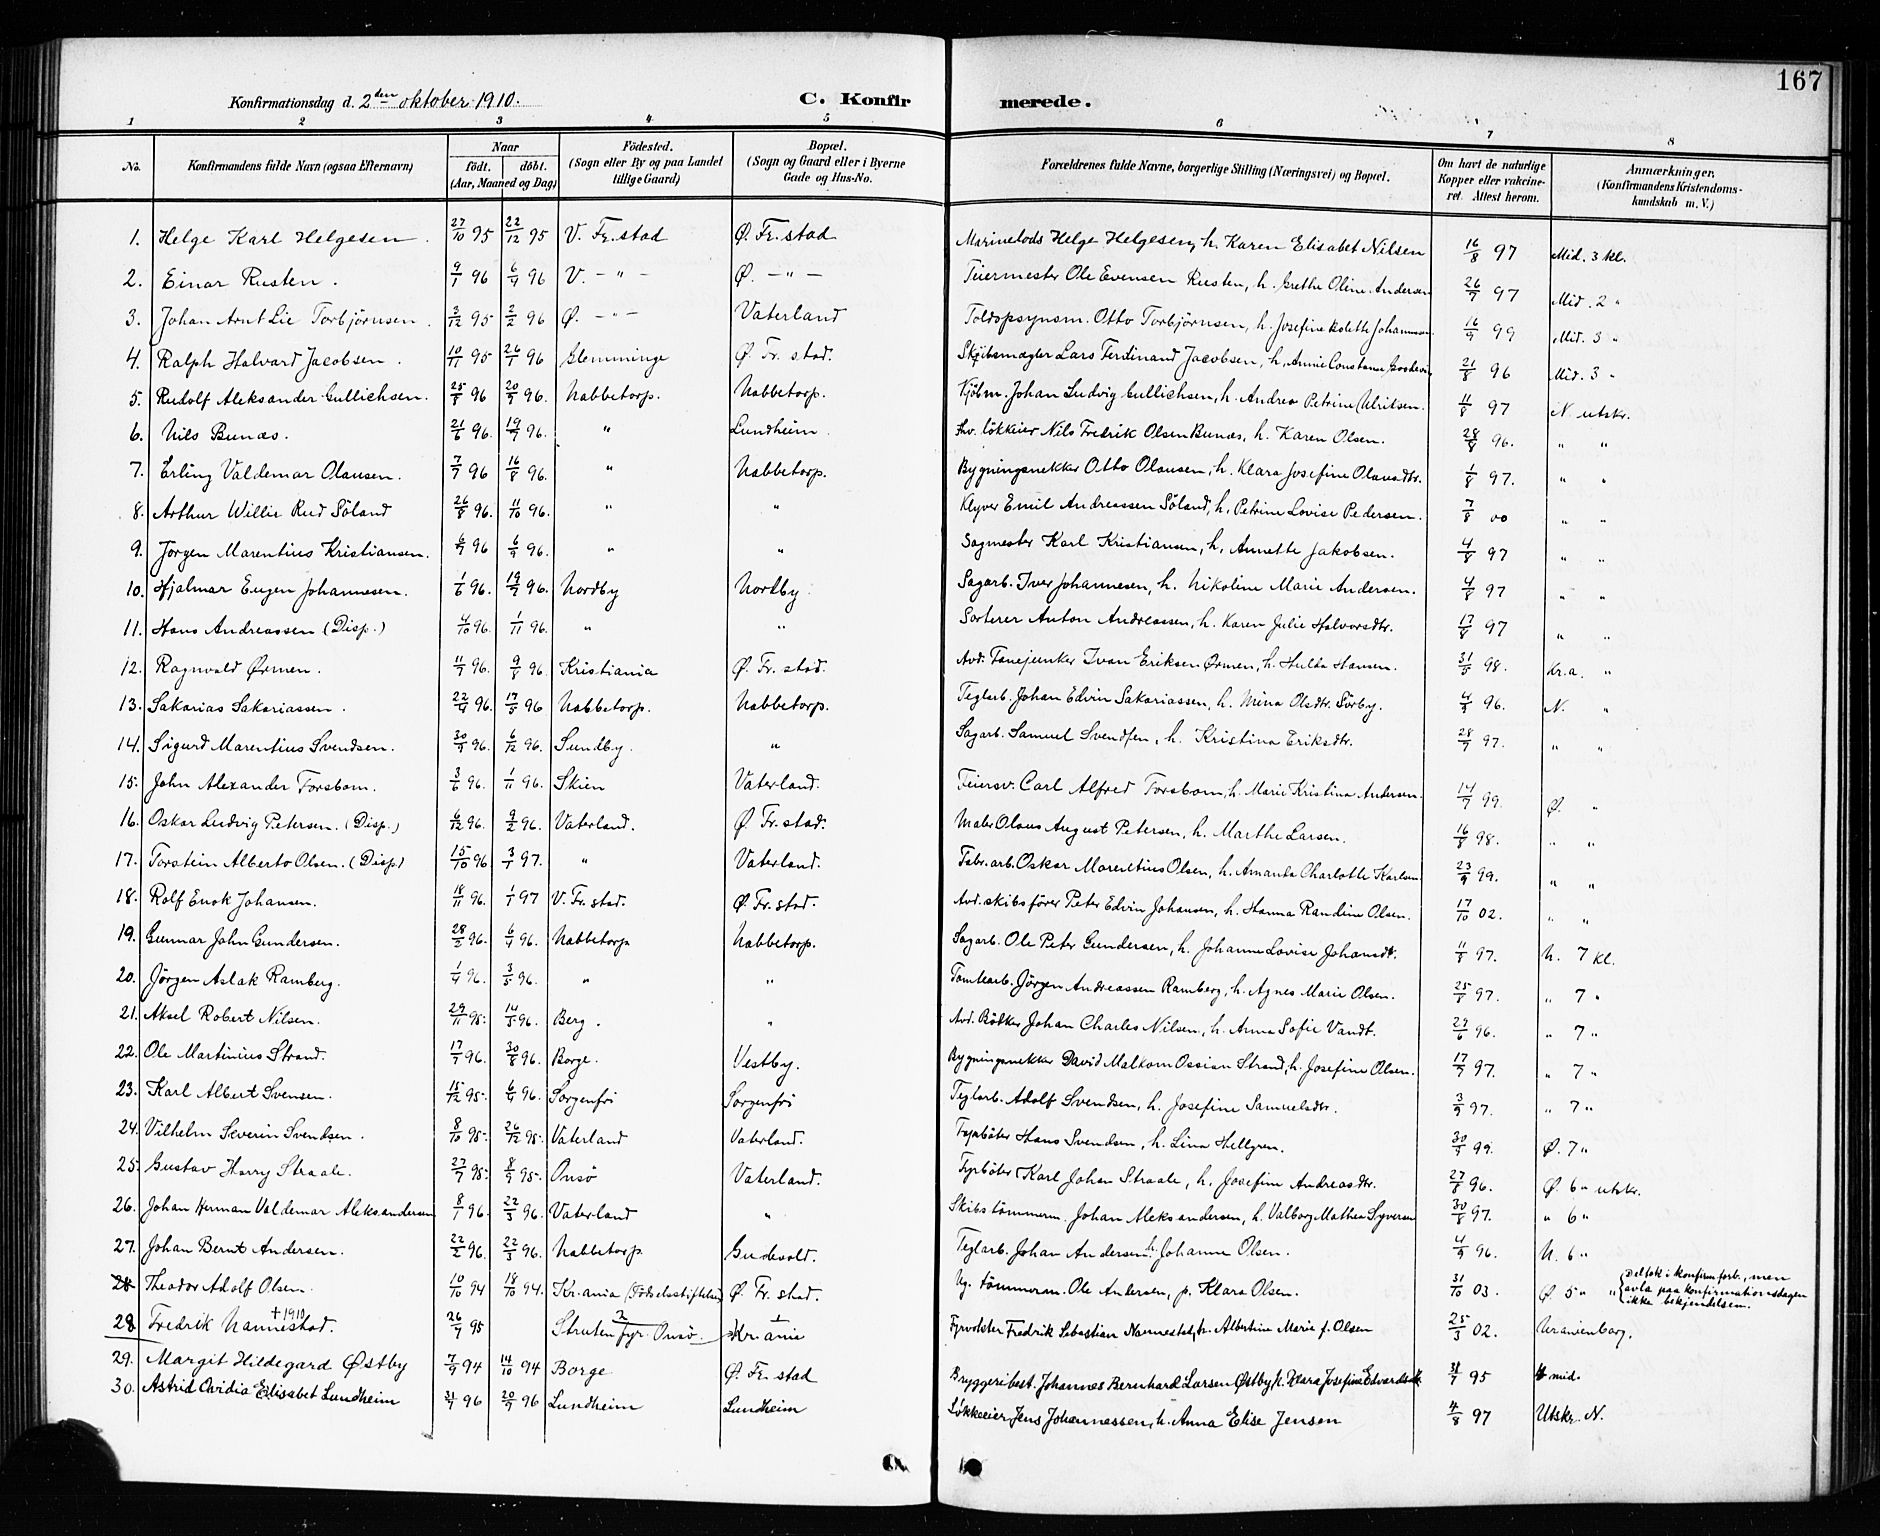 167
Konfirmationsdag d. 2den oktober 1910. C. Konfirmerede.
1 2 3 4 5 6 7 8
No. Konfirmandens fulde Navn (ogsaa Efternavn) Naar født. døbt. (Aar, Maaned og Dag) Fødested. (Sogn eller By og paa Landet tillige Gaard) Bopæl. (Sogn og Gaard eller i Byerne Gade og Hus-No. Forældrenes fulde Navne, borgerlige Stilling (Næringsvei) og Bopæl. Om havt de naturlige Kopper eller vakcineret. Attest herom. Anmærkninger. (Konfirmandens Kristendomskundskab m. V.)
1. Helge Karl Helgesen. 27/10 95 22/12 95 V. Fr.stad Ø. Fr.stad Marinelods Helge Helgesen, h. Karen Elisabet Nilsen 16/8 97 Mid. 3 kl.
2. Einar Rusten. 9/1 96 6/4 96 V. -"- Ø. -"- Feiermester Ole Evensen Rusten, h. Grethe Oline Andersen 26/7 97 Mid. 2 "
3. Johan Arnt Lie Torbjörnsen. 3/12 95 2/2 96 Ø. -"- Vaterland Toldopsynsm. Otto Torbjörnsen, h. Josefine Kolette Johannesen 16/9 99 Mid. 3 "
4. Ralph Halvard Jacobsen. 10/11 95 26/1 96 Glemminge Ø. Fr. stad. Skibsmægler Lars Ferdinand Jacobsen, h. Annie Constance 21/8 96 Mid. 3 "
5. Rudolf Aleksander Gullichsen. 25/8 96 20/9 96. Nabbetorp. Nabbetorp. Kjöbm. Johan Ludvig Gullichsen, h. Andrea Petrine Ulriksen. 11/8 97 N. utskr.
6. Nils Bunæs. 21/6 96. 19/7 96. " Lundheim. fhv. lökkeier Nils Fredrik Olsen Bunæs, h. Karen Olsen. 28/8 96. " "
7. Erling Valdemar Olausen. 7/7 96 16/8 96. " Nabbetorp. Bygningsnekker Otto Olausen, h. Klara Josefine Olausdtr. 1/8 97. " "
8. Arthur Willie Rud Söland 26/8 96. 11/10 96. " " Klyver Emil Andreassen Söland, h. Petrine Lovise Pedersen. 7/8 00 " "
9. Jörgen Marentius Kristiansen. 6/7 96 6/9 96. " " Sagmester Karl Kristiansen, h. Annette Jakobsen. 4/8 97 " "
10. Hjalmar Eugen Johannesen. 1/6 96. 19/7 96. Nordby Nordby Sagarb. Iver Johannesen, h. Nikoline Marie Andersen. 4/8 97 " "
11. Hans Andreassen (Disp.) 4/10 96. 1/11 96. " " Sorterer Anton Andreassen, h. Karen Julie Halvorsdtr. 17/8 97 " "
12. Ragnvald Ørmen. 11/7 96. 9/8 96. Kristiania Ø. Fr. stad. Avd. Fanejunker Ivan Eriksen Ørmen, h. Hulda Hansen. 31/5 98. Kr.a. "
13. Sakarias Sakariassen. 22/4 96. 17/5 96 Nabbetorp. Nabbetorp. Teglarb. Johan Edvin Sakariassen, h. Mina Olsdtr. Sörby. 4/9 96. N. "
14. Sigurd Marentius Svendsen. 30/9 96. 6/12 96. Sundby. " Sagarb. Samuel Svendsen, h. Kristina Eriksdtr. 28/7 97. " "
15. John Alexander Forsbom. 3/6 96. 1/11 96. Skien Vaterland. Feiersv. Carl Alfred Forsbom, h. Marie Kristina Andersen. 14/9 99. Ø. "
16. Oskar Ludvig Petersen. (Disp.) 6/12 96. 9/2 96. Vaterland. Ø. Fr.stad. Maler Olaus August Petersen, h. Marthe Larsen. 16/8 98. " "
17. Torstein Alberto Olsen. (Disp.) 15/10 96 3/1 97. " Vaterland. Fabr. arb. Oskar Marentius Olsen, h. Amanda Charlotte Karlsen 23/9 99. " "
18. Rolf Enok Johansen. 18/11 96. 1/1 97 V. Fr. stad. Ø. Fr. stad. Avd. skibsförer Peter Edvin Johansen, h. Hanna Randine Olsen. 17/10 02. " "
19. Gunnar John Gundersen. 28/2 96. 6/4 96. Nabbetorp Nabbetorp. Sagarb. Ole Peter Gundersen, h. Johanne Lovise Johansdt. 11/8 97. N. 7 kl.
20. Jörgen Aslak Ramberg. 1/4 96. 3/5 96. " " Tomtearb. Jörgen Andreassen Ramberg, h. Agnes Marie Olsen. 25/8 97. " 7 "
21. Aksel Robert Nilsen. 29/11 95. 14/5 96. Berg. " Avd. Bötker Johan Charles Nilsen, h. Anna Sofie Vandt. 29/6 96. " 7 "
22. Ole Martinius Strand. 17/7 96. 30/8 96. Borge. Vestby. Bygningsnekker David Malkom Ossian Strand, h. Josefine Olsen. 17/7 97. " 7 "
23. Karl Albert Svensen. 15/12 95. 6/4 96. Sorgenfri Sorgenfri Teglarb. Adolf Svendsen, h. Josefine Samuelsdtr. 3/9 97. " 7 "
24. Vilhelm Severin Svendsen. 8/10 95. 26/12 95. Vaterland Vaterland. Fyrböter Hans Svendsen, h. Lina Hellgren. 30/9 99. Ø. 7 "
25. Gustav Harry Straale. 27/7 95. 8/9 95. Onsö Vaterland. Fyrböter Karl Johan Straale, h. Josefine Andreasdtr. 27/8 96. Ø. 6 " utskr.
26. Johan Herman Valdemar Aleksandersen 8/1 96. 22/3 96. Vaterland " Skibstömmerm. Johan Aleksandersen, h. Valborg Mathea Syversen 30/8 97. " 6 "
27. Johan Bernt Andersen. 22/2 96. 22/3 96. Nabbetorp Gudevold. Teglarb. Johan Andersen. h. Johanne Olsen. 4/9 96. N. 6 "
28 Theodor Adolf Olsen. 10/10 94 18/10 94. Kr.ania (Födselsstiftelsen) Ø. Fr. stad. Ug. tömmerm. Ole Andersen, p. Klara Olsen. 31/10 03. Ø 5 " " Deltok i konfirm.forb., men avla paa konfirmationsdagen ikke bekjendelsen.
28 Fredrik Nannestad. †1910 26/7 95 Strutenfyr Onsö. Kr.ania Fyrvokter Fredrik Sebastian Nannestad, h. Albertine Marie f. Olsen 25/3 02. Uranienborg.
29. Margit Hildegard Østby 7/9 94 14/10 94 Borge Ø. Fr. stad Bryggeribest. Johannes Bernhard Larsen Østby, h. Klara Josefine Edvardsdt. 31/7 95 4 mid.
30. Astrid Ovidia Elisabet Lundheim 31/7 96 20/9 96 Lundheim Lundheim Løkkeeier Jens Johannessen, h. Anna Elise Jensen 4/8 97 Utskr. N.